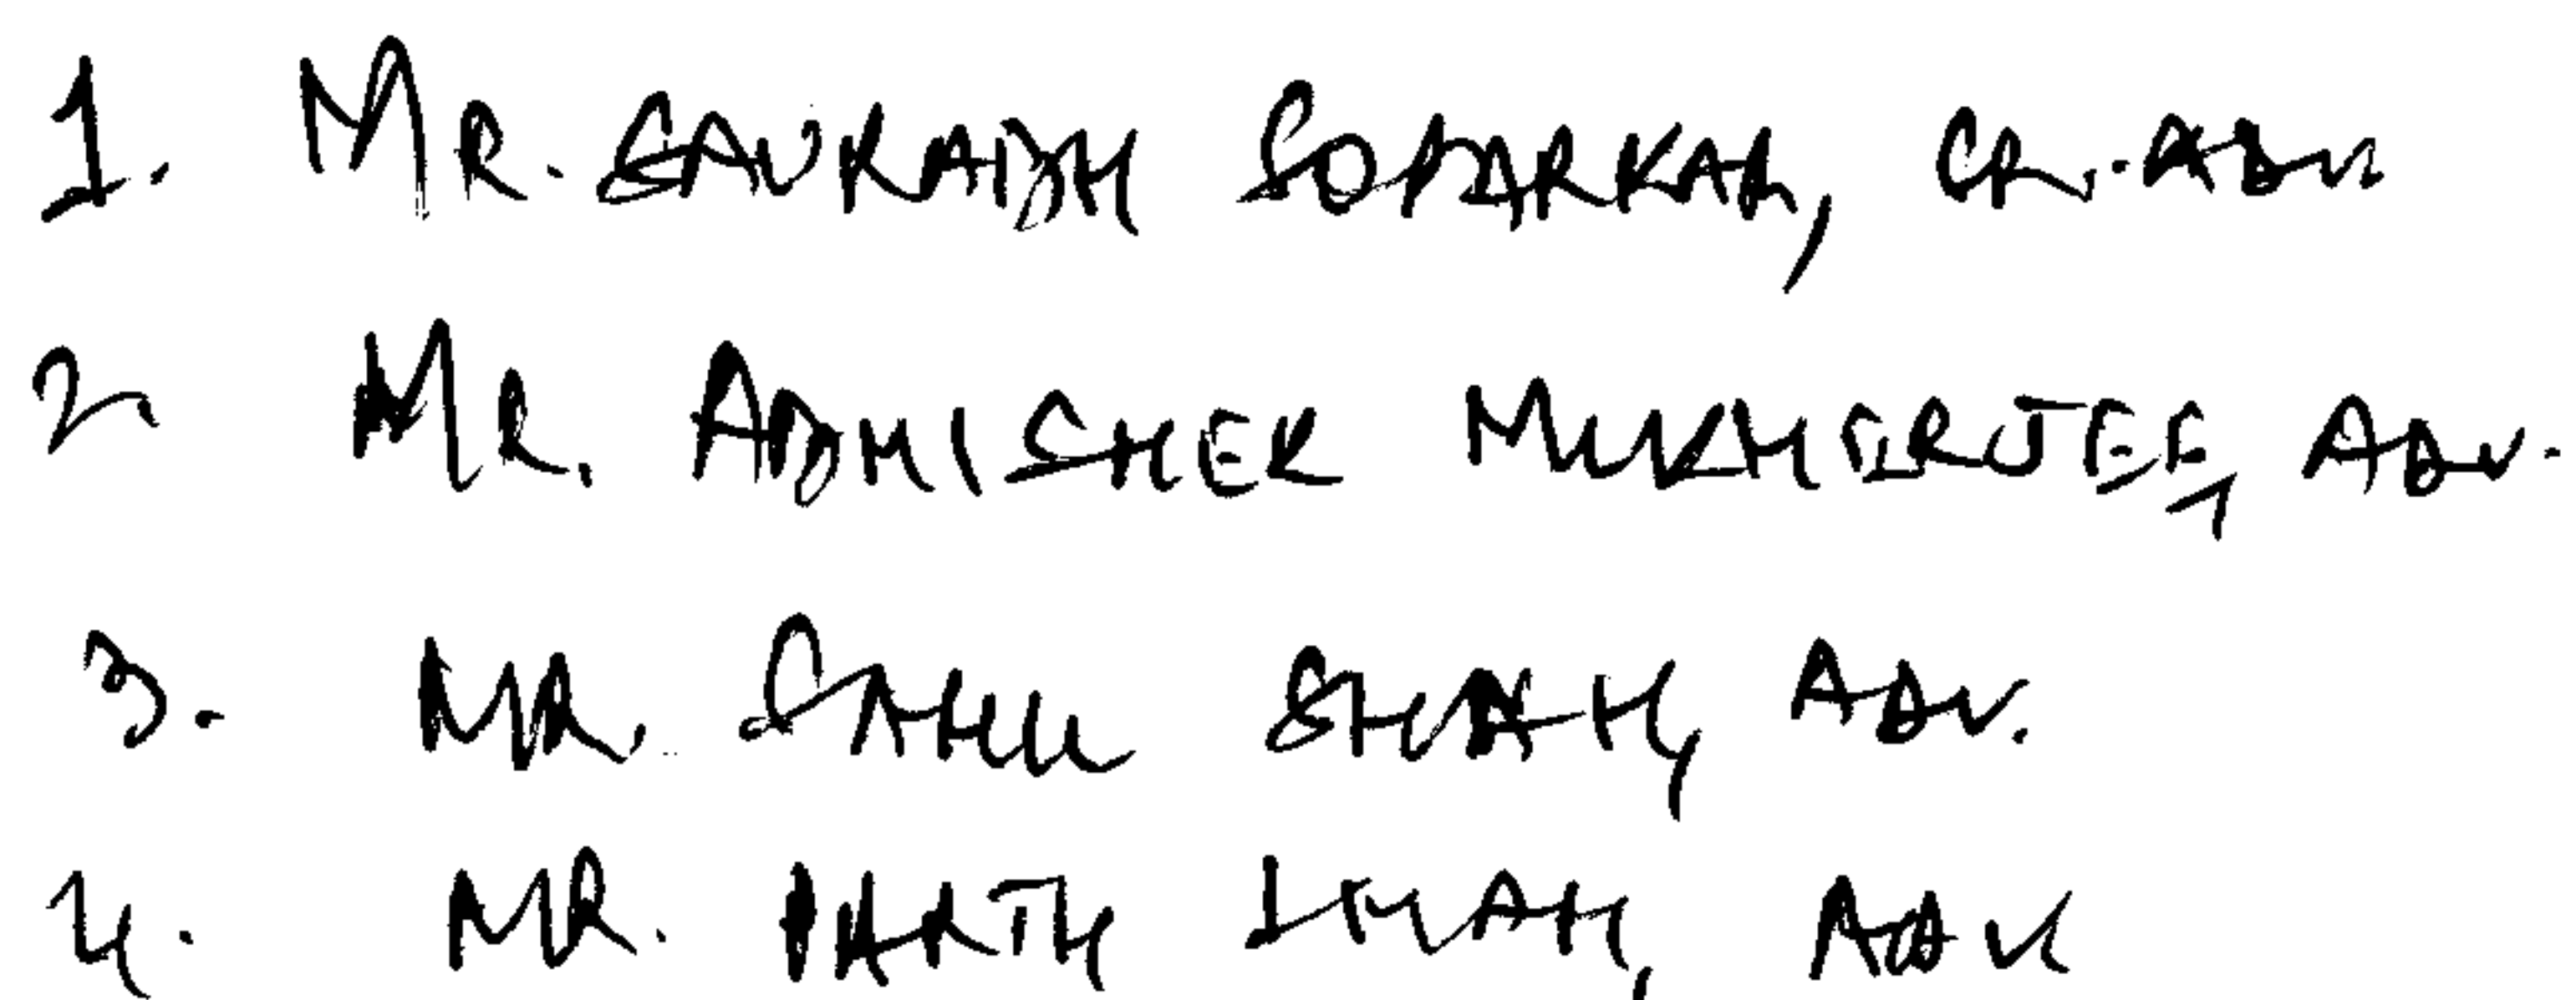 1. MR. SAURABH SOPARKAR, SR. ADV
2. MR. ABHISHEK MUKHERJEE, ADV.
3. MR. SAHIL SHAH, ADV.
4. MR. PARTH SHAH, ADV